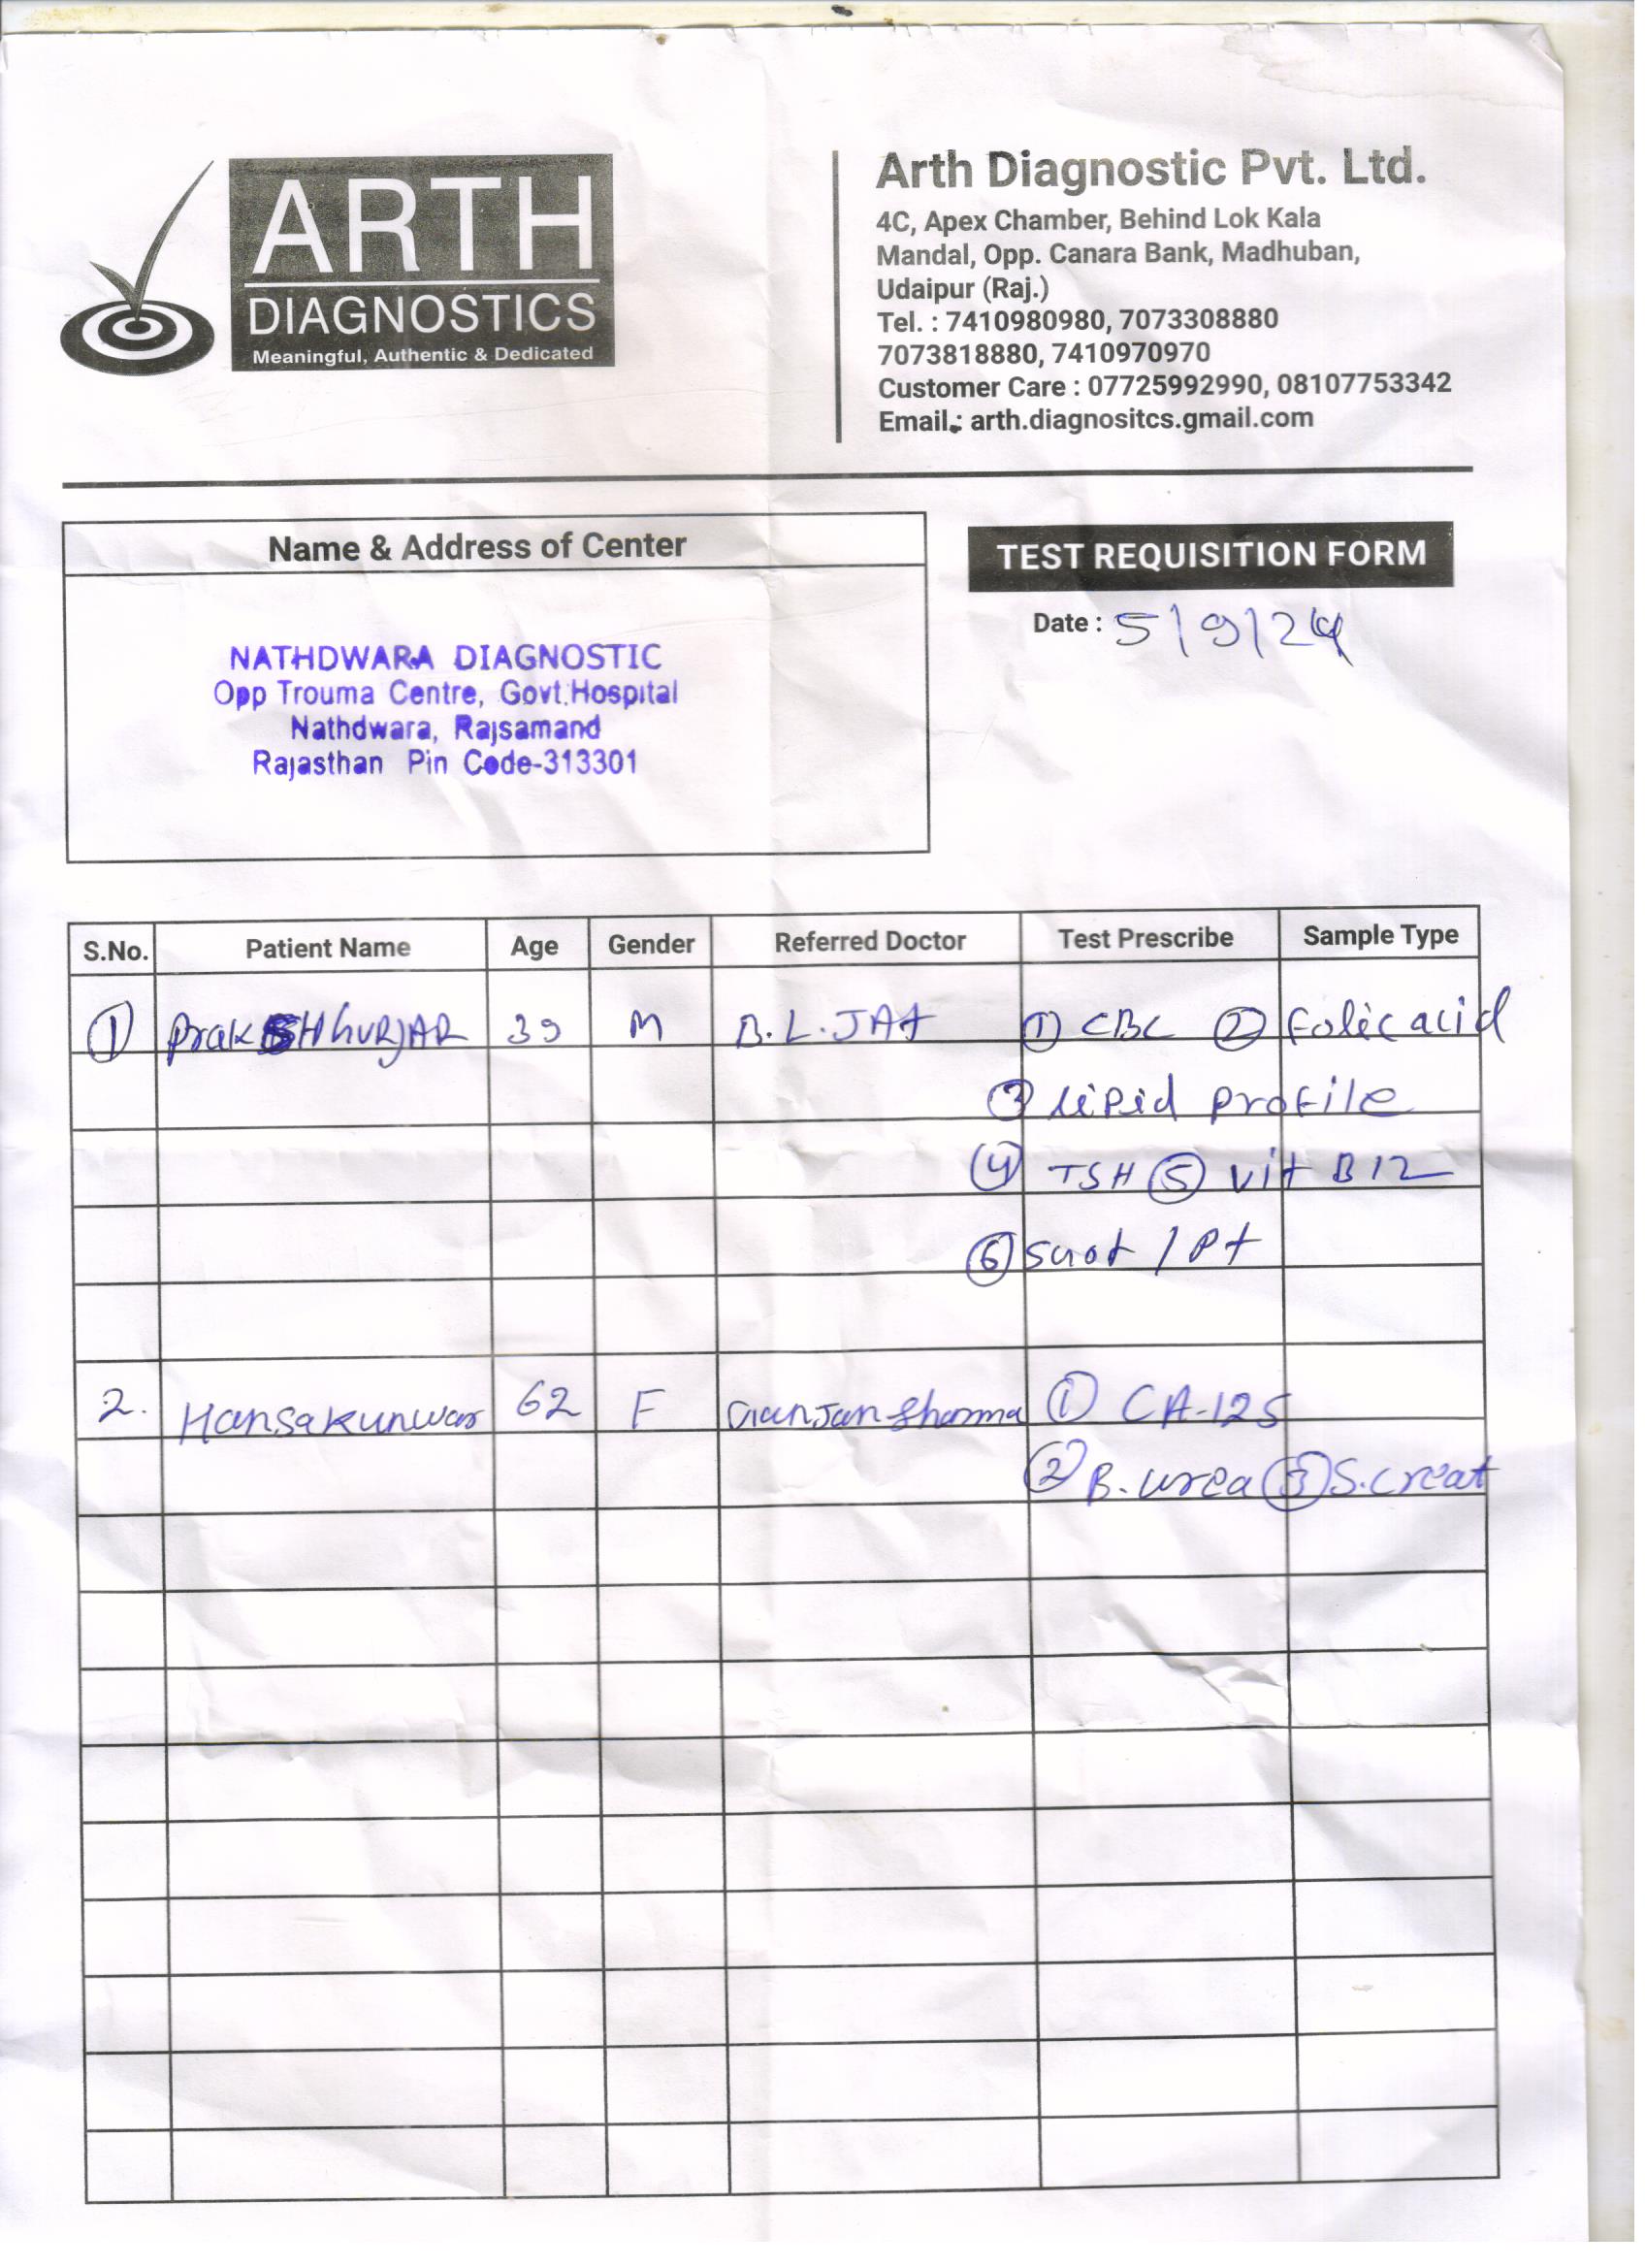 ARTH
DIAGNOSTICS
Meaningful, Authentic & Dedicated
Arth Diagnostic Pvt. Ltd.
4C, Apex Chamber, Behind Lok Kala
Mandal, Opp. Canara Bank, Madhuban,
Udaipur (Raj.)
Tel. : 7410980980, 7073308880
7073818880, 7410970970
Customer Care : 07725992990, 08107753342
Email.: arth.diagnositcs.gmail.com
Name & Address of Center
NATHDWARA DIAGNOSTIC
Opp Trouma Centre, Govt.Hospital
Nathdwara, Rajsamand
Rajasthan Pin Code-313301
TEST REQUISITION FORM
Date : 5/9/24
S.No. Patient Name Age Gender Referred Doctor Test Prescribe Sample Type
1 39 M B.L.JAt 1 CBC 2 Folic acid
3 lipid profile
4 TSH 5 vit B12
6 / Pt
2. Hansakunwar 62 F Sharma 1 CA-125
2 B. urea 3 S.creat